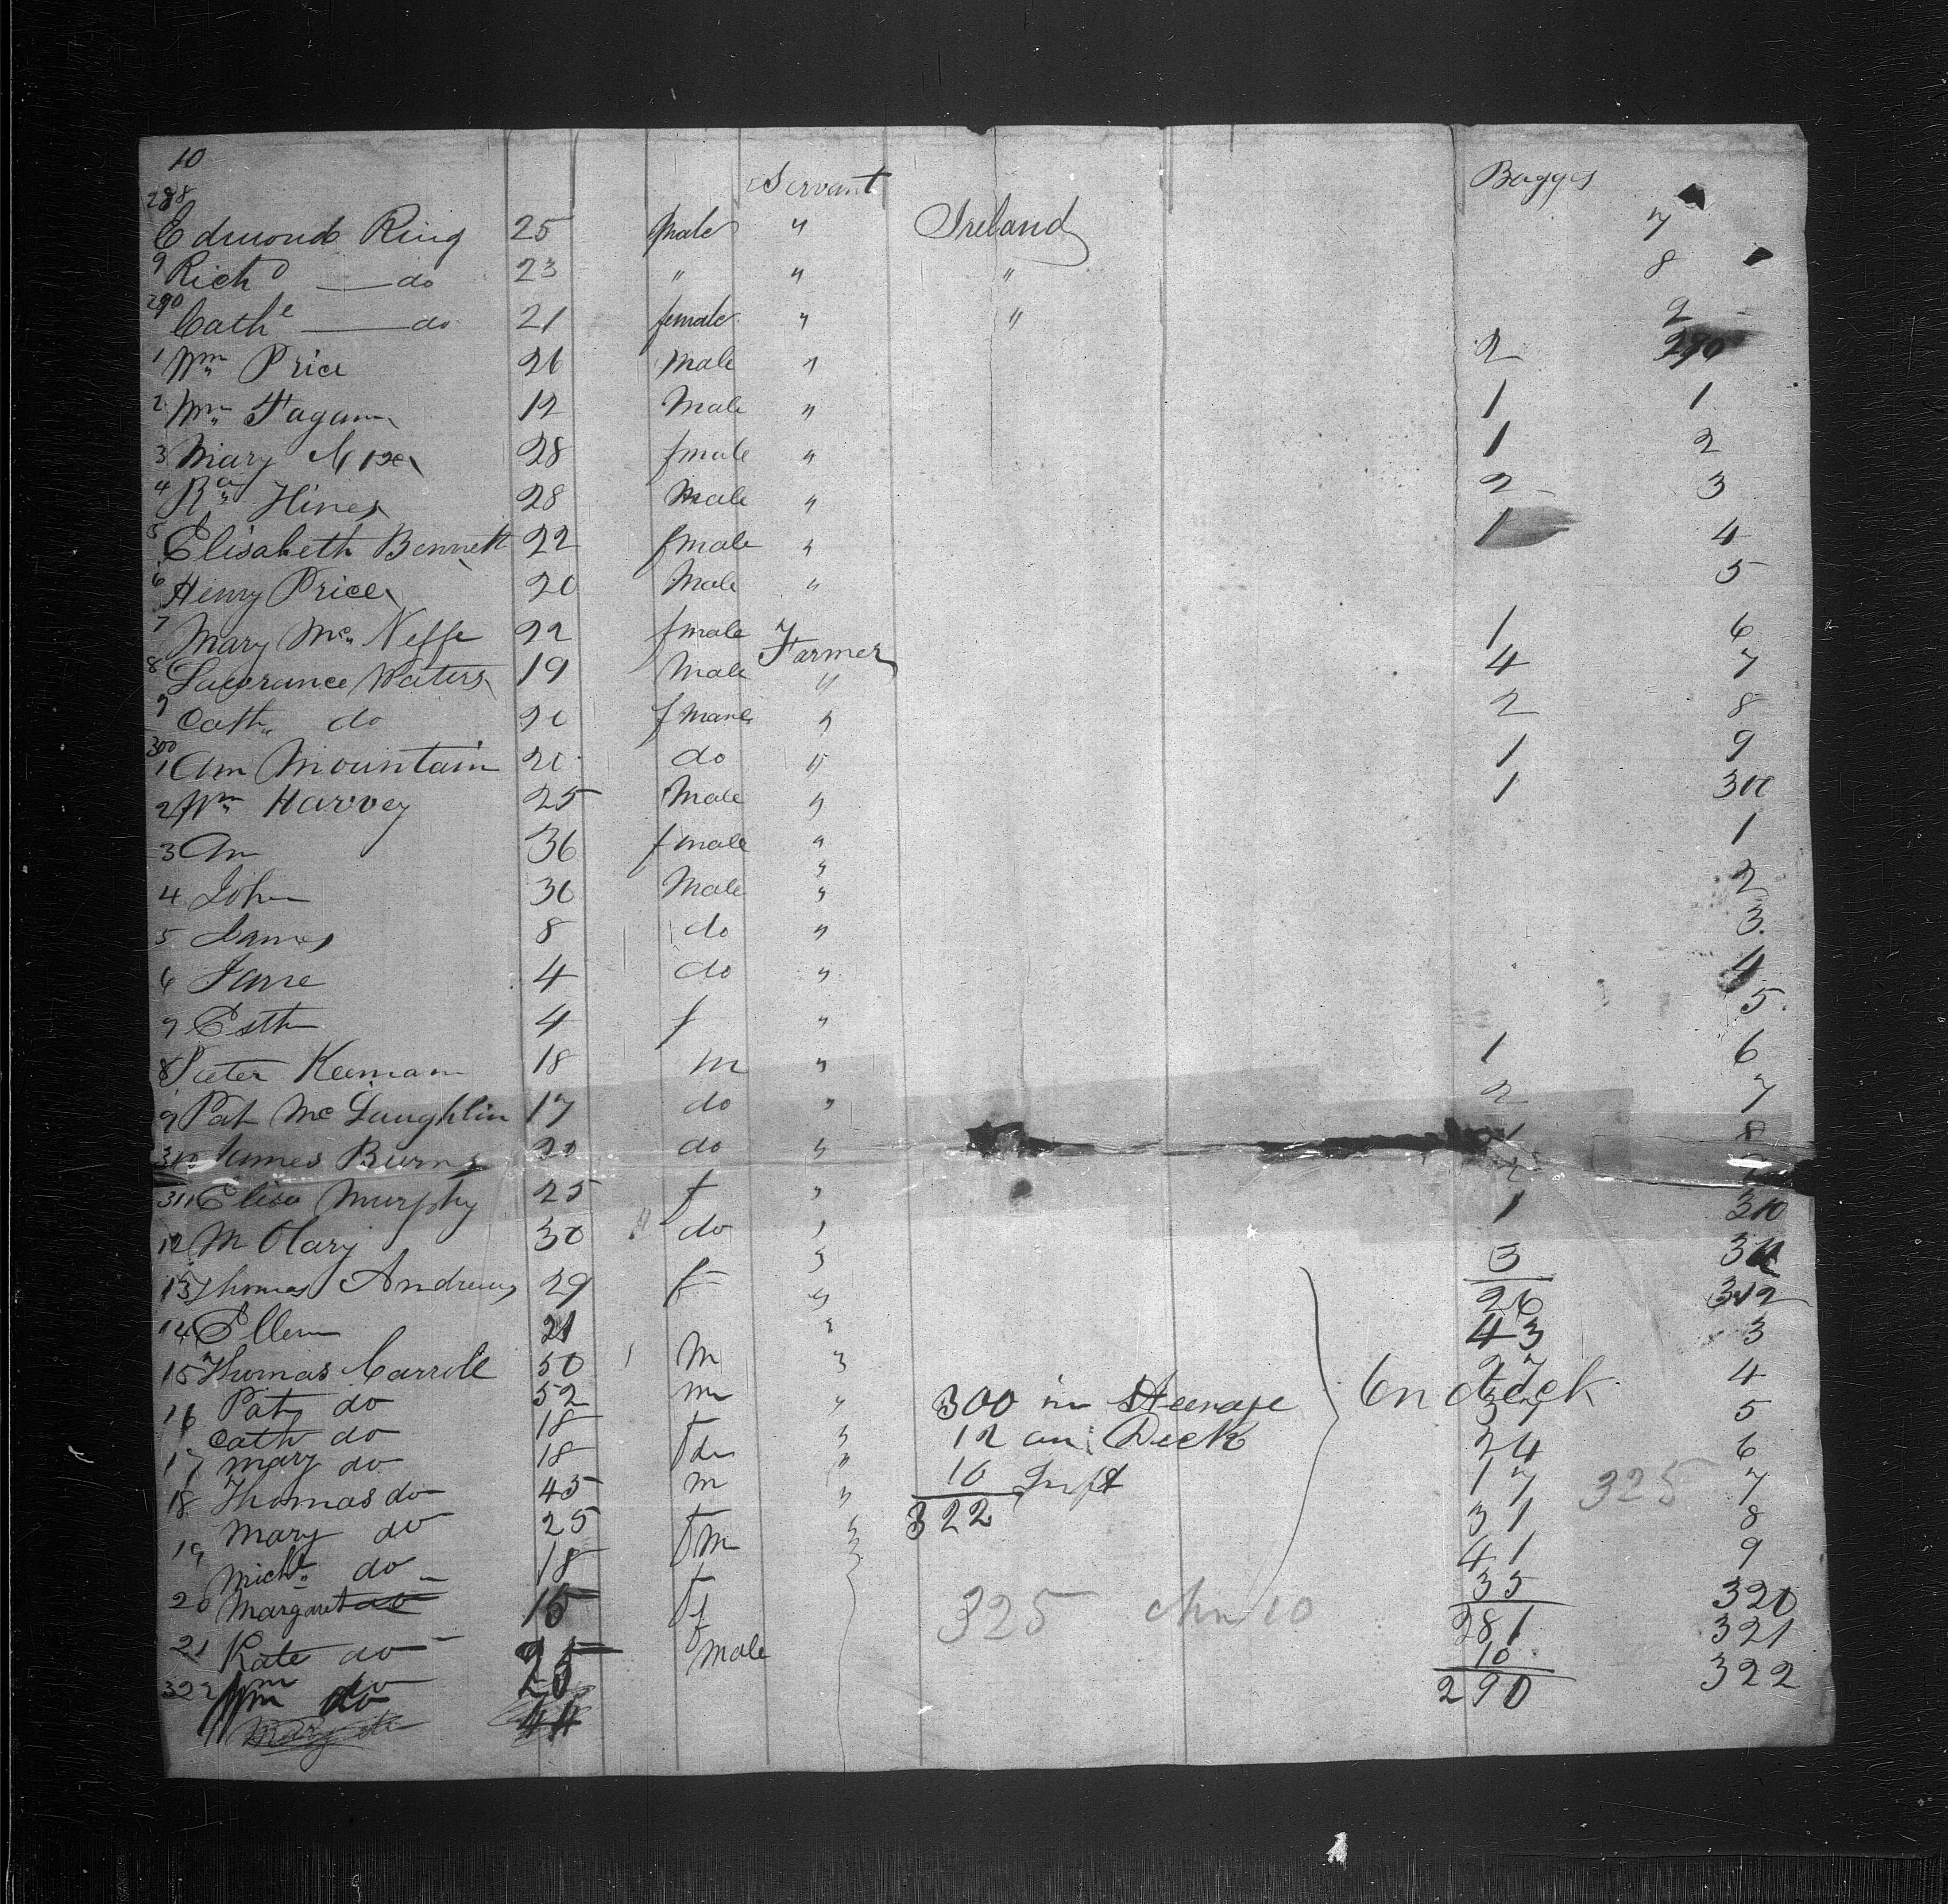 10
Servant Baggs
288 Edmond Ring 25 Male " Ireland 7
9 Richd — do 23 " " " 8
290 Cathe — do 21 female " " 9
1 Wm Price 26 Male " 2 290
2 Wm Fagan 12 Male " 1 1
3 Mary 28 fmale " 1 2
4 Hines 28 Male " 2 3
5 Elisabeth Bennett 22 fmale " 1 4
6 Henry Price 20 Male " 5
7 Mary Mc Neffe 22 fmale " 1 6
8 Lawrance Waters 19 Male Farmer 4 7
9 Cath do 20 " 2 8
300
1 Ann Mountain 20 do " 1 9
2 Wm Harvey 25 Male " 1 300
3 An 36 fmale " 1
4 John 30 Male " 2
5 James 8 do " 3
6 Jane 4 do " 4
7 Esth 4 f " 5
8 Peter Keernan 18 m " 1 6
9 Pat Mc Laughlin 17 do " 2 7
310 James Burns 20 do " 8
311 Elisa Murphy 25 f " 2
12 M Olary 30 do " 1 310
13 Thomas Andrews 29 f " 3 311
14 Ellen 21 " 26 312
15 Thomas Carroll 50 M " 43 3
16 Pat do 52 m " 300 in Steerage On deck 27 4
Cath do 18 " 12 on Deck 5
17 Mary do 18 " 10 Inft 24 6
18 Thomas do 45 m " 322 17 325 7
Mary do 25 " 31 8
19 Michl do 18 m 41 9
20 Margaret do 15 f 325 35 320
21 Kate do 25 f 281 321
322 Wm do 20 male 10 322
Wm do 290
Mary do 44